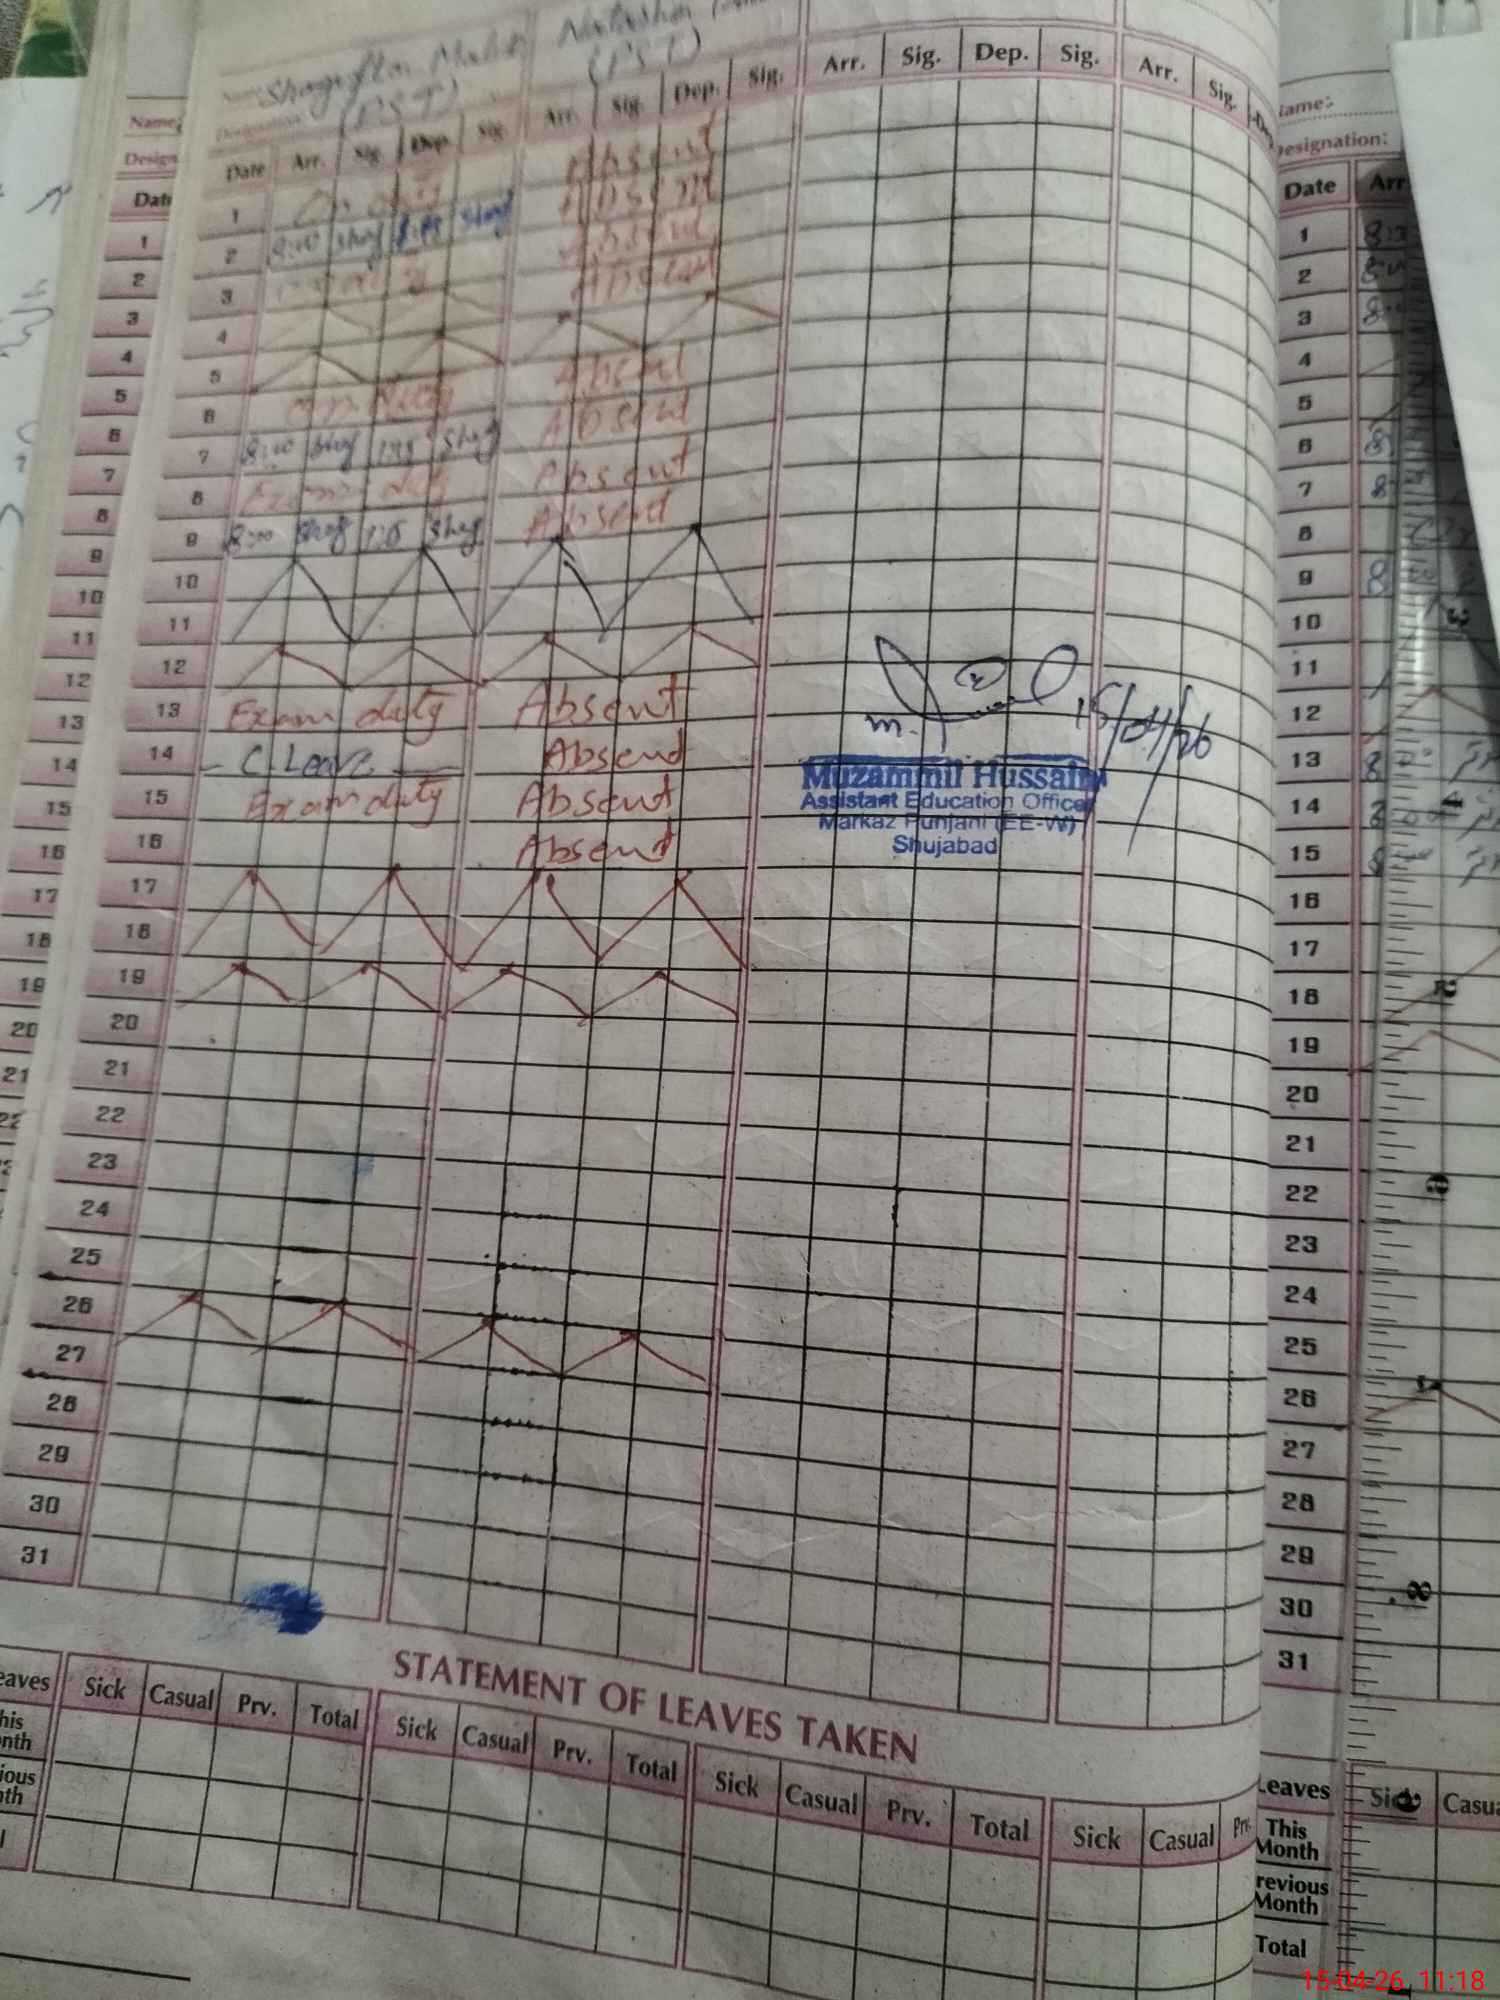 Name: Shagufta Malik Natasha
Designation: (PST) (PST)
Date Arr. Sig. Dep. Sig. Arr. Sig. Dep. Sig. Arr. Sig. Dep. Sig. Arr. Sig.
1 On duty Absent
2 8:00 Shag Shag Absent
3 Absent
4 Absent
5
6 on duty Absent
7 8:00 Shag 1:15 Shag Absent
8 Exam duty Absent
9 8:00 Shag 1:15 Shag Absent
10
11
12
13 Exam duty Absent
14 C. Leave Absend
15 Exam duty Absent
16 Absend
17
18
19
20
21
22
23
24
25
26
27
28
29
30
31
15/04/26
Muzammil Hussain
Assistant Education Officer
Markaz Punjani (EE-W)
Shujabad
STATEMENT OF LEAVES TAKEN
Leaves Sick Casual Prv. Total Sick Casual Prv. Total Sick Casual Prv. Total Sick Casual Prv.
This Month
Previous Month
Name:
Design
Date
1
2
3
4
5
6
7
8
9
10
11
12
13
14
15
16
17
18
19
20
21
22
Name:
Designation:
Date Arr
1
2
3
4
5
6
7
8
9
10
11
12
13
14
15
16
17
18
19
20
21
22
23
24
25
26
27
28
29
30
31
Leaves Sick Casua
This Month
Previous Month
Total
15-04-26 11:18